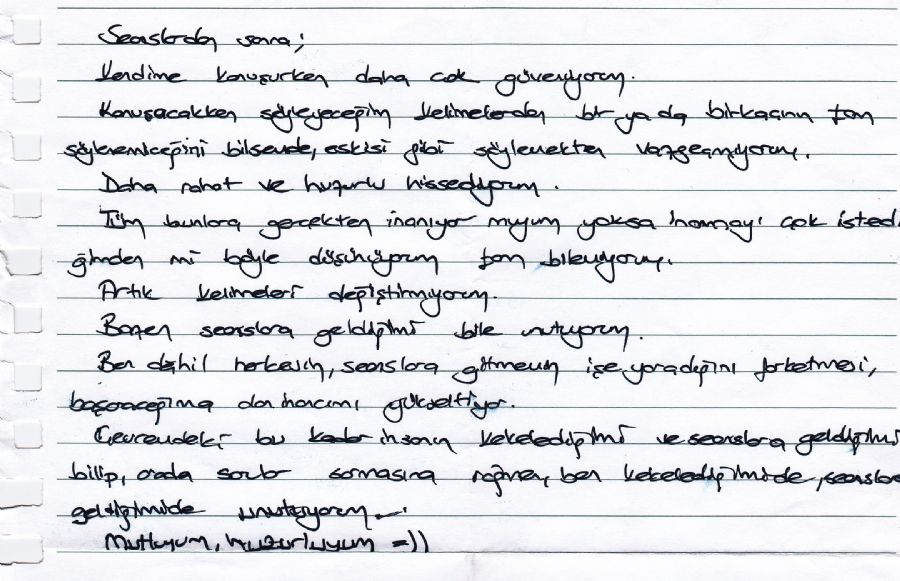 Seanslardan sonra;
Kendime konuşurken daha çok güveniyorum.
Konuşacakken söyleyeceğim kelimelerden bir ya da birkaçını tam
söylemiceğini bilsemde, eskisi gibi söylemekten vazgeçmiyorum.
Daha rahat ve huzurlu hissediyorum.
Tüm bunlara gerçekten inanıyor muyum yoksa inanmayı çok isted.
ğimden mi böyle düşünüyorum tam bilemiyorum.
Artık kelimeleri değiştirmiyorum.
Bazen seanslara geldiğimi bile unutuyorum.
Ben dahil herkesin, seanslara gitmemin işe yaradığını farketmesi,
başaracağıma olan inancımı yükseltiyor.
Çevremdeki bu kadar insanın kekelediğimi ve seanslara geldiğimi
bilip, arada sırada sormasına rağmen, ben kekelediğimide, seanslara
geldiğimide unutuyorum...
Mutluyum, huzurluyum =))